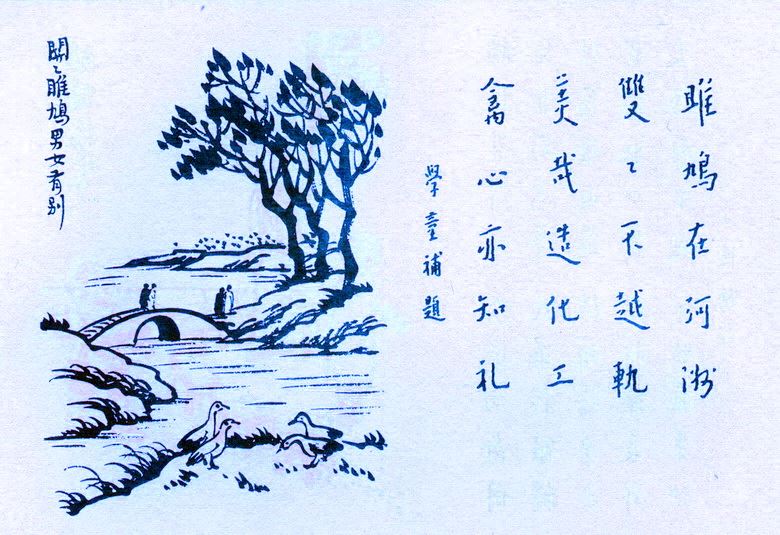 雎鳩在河洲
雙〻不越軌
美哉造化工
禽心亦知礼
學童補題
關〻雎鳩男女有别